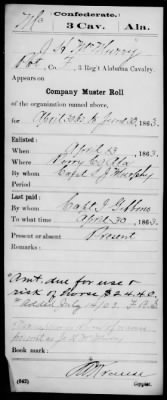 Mc
Confederate.
3 Cav.
Ala.
Pvt., Co. F, 3 Reg't Alabama Cavalry.
Appears on
Company Muster Roll
of the organization named above,
for April 30 to June 30, 1863.
Enlisted:
When April 23, 1863.
Where Perry Co Ala
By whom Capt. J. Murphy
Period
Last paid:
By whom Capt J.
To what time April 30, 1863.
Present or absent Present
Remarks:
Amt. due for use &
risk of horse $24.40.
Book mark:
(642)
Copyist.